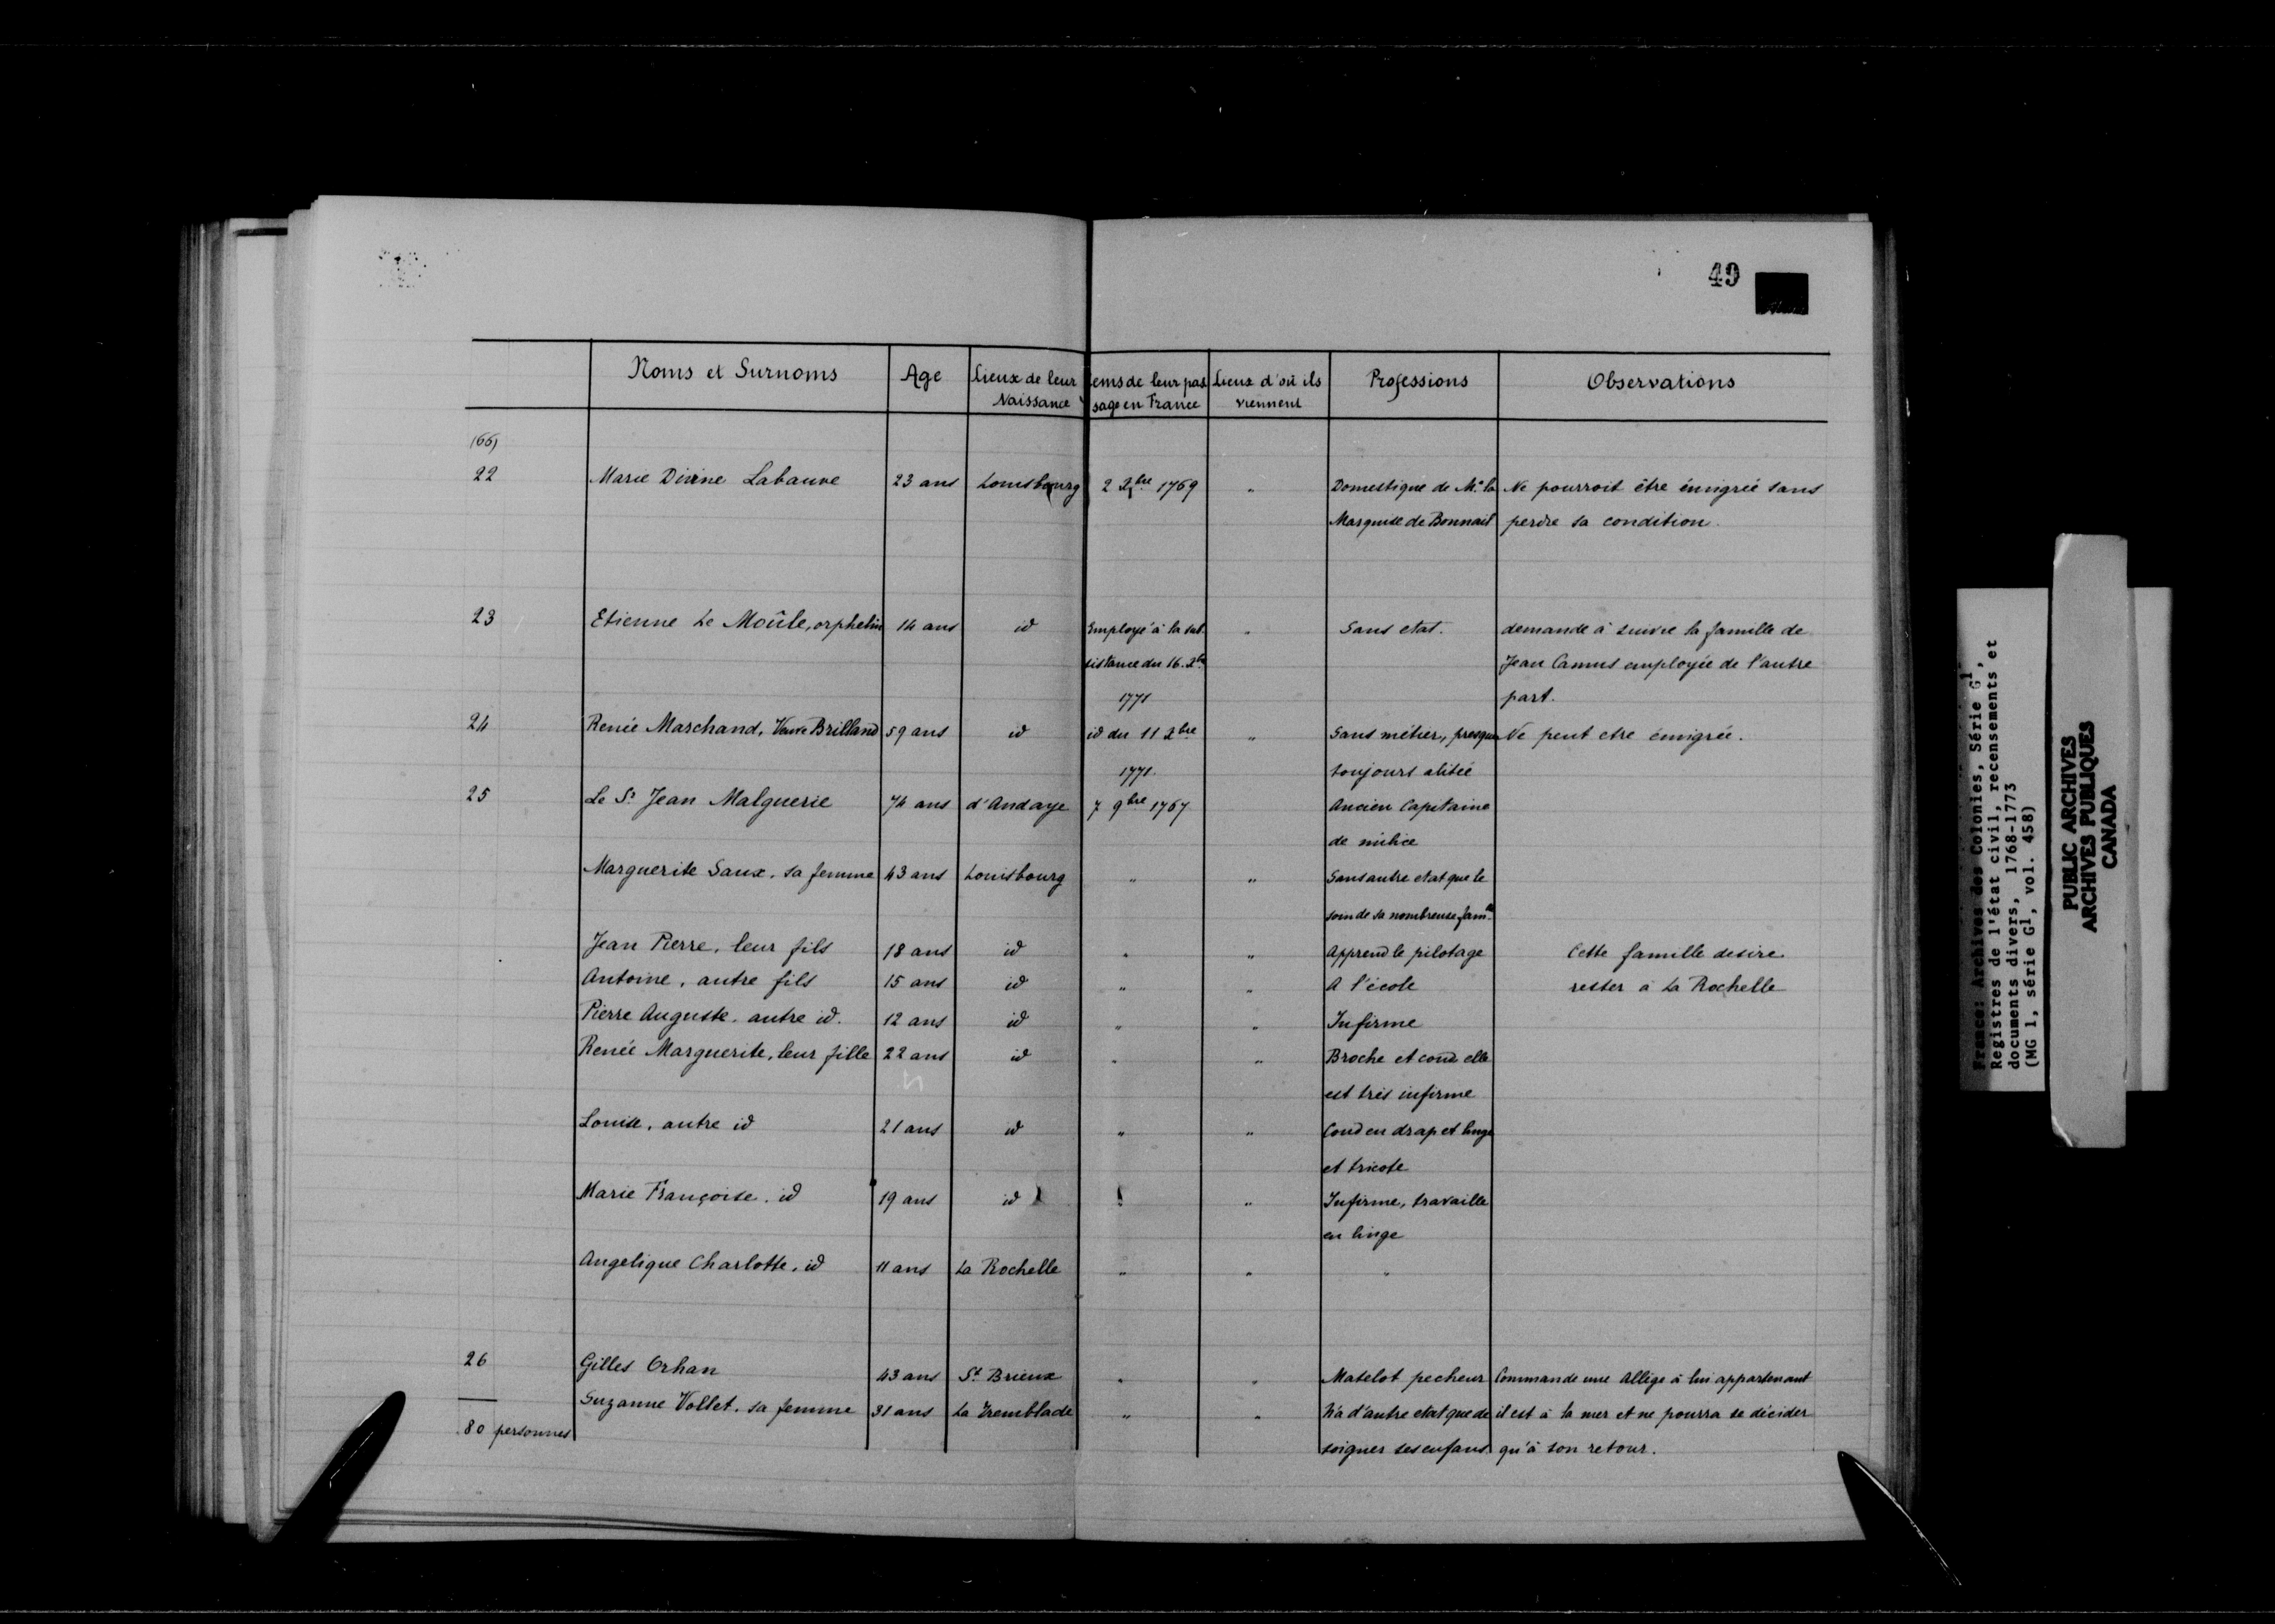 49
Noms et Surnoms Age Lieux de leur Naissance tems de leur passage en France Lieux d'où ils viennent Professions Observations
(66)
22 Marie Divine Labauve 23 ans Louisbourg 2 2bre 1769 " Domestique de Me la Ne pourroit être émigrée sans
Marquise de Bonnait perdre sa condition.
23 Etienne Le Moûle, orphelin 14 ans id Employé à la sub- " Sans etat. demande à suivre la famille de
sistance du 16. 2bre Jean Camus employée de l'autre
1771 part.
24 Renée Marchand, Veuve Brilland 59 ans id id du 11 2bre " Sans métier, presque Ne peut etre émigrée.
1771. toujours alitée
25 Le Sr Jean Malguerie 74 ans d'Andaye 7 9bre 1767 Ancien Capitaine
de milice
Marguerite Saux, sa femme 43 ans Louisbourg " " Sans autre etat que le
soin de sa nombreuse famlle
Jean Pierre, leur fils 18 ans id " " Apprend le pilotage Cette famille desire
Antoine, autre fils 15 ans id " " A l'école rester à La Rochelle
Pierre Auguste, autre id. 12 ans id " " Infirme
Renée Marguerite, leur fille 22 ans id " " Broche et coud elle
est très infirme
Louise, autre id 21 ans id " " Coud en drap et linge
et tricote
Marie Françoise, id 19 ans id " " Infirme, travaille
en linge
Angelique Charlotte, id 11 ans La Rochelle " " "
26 Gilles Orhan 43 ans St Brieux " " Matelot pecheur Commande une Allège à lui appartenant
Suzanne Vollet, sa femme 31 ans La Tremblade " " N'a d'autre etat que de il est à la mer et ne pourra se décider
80 personnes soigner ses enfans qu'à son retour.
France: Archives des Colonies, Série G1,
Registres de l'état civil, recensements et
documents divers, 1768-1773
(MG 1, série G1, vol. 458)
PUBLIC ARCHIVES
ARCHIVES PUBLIQUES
CANADA